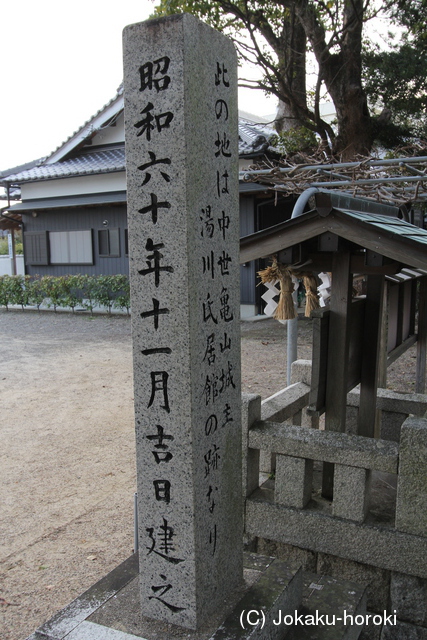 此の地は中世亀山城主
湯川氏居館の跡なり
昭和六十年十一月吉日建之
(C) Jokaku-horoki